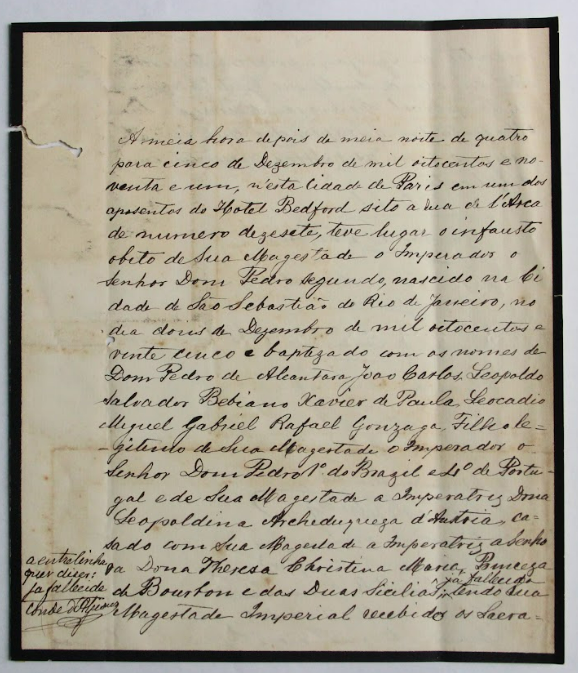 A meia hora depois de meia noite de quatro
para cinco de Dezembro de mil oitocentos e no-
venta e um, n'esta Cidade de Paris em um dos
aposentos do Hotel Bedford sito a rua de l'Arca
de numero dezesete, teve lugar o infausto
obito de Sua Magestade o Imperador o
Senhor Dom Pedro Segundo, nascido na Ci
dade de São Sebastião do Rio de Janeiro, no
dia dous de Dezembro de mil oitocentos e
vinte cinco e baptizado com os nomes de
Dom Pedro de Alcantara João Carlos Leopoldo
Salvador Bebiano Xavier de Paula Leocadio
Miguel Gabriel Rafael Gonzaga, Filho le=
gitimo de Sua Magestade o Imperador o
Senhor Dom Pedro 1º do Brazil e 4º de Portu-
gal e de Sua Magestade a Imperatriz Dona
Leopoldina Archeduqueza d'Austria, ca-
sado com Sua Magestade a Imperatriz a Senho
ra Dona Thereza Christina Maria, Princeza
já fallecida
de Bourbon e das Duas Sicilias, tendo Sua
Magestade Imperial recebido os Sacra=
a entrelinha
quer dizer:
já fallecida
Conde